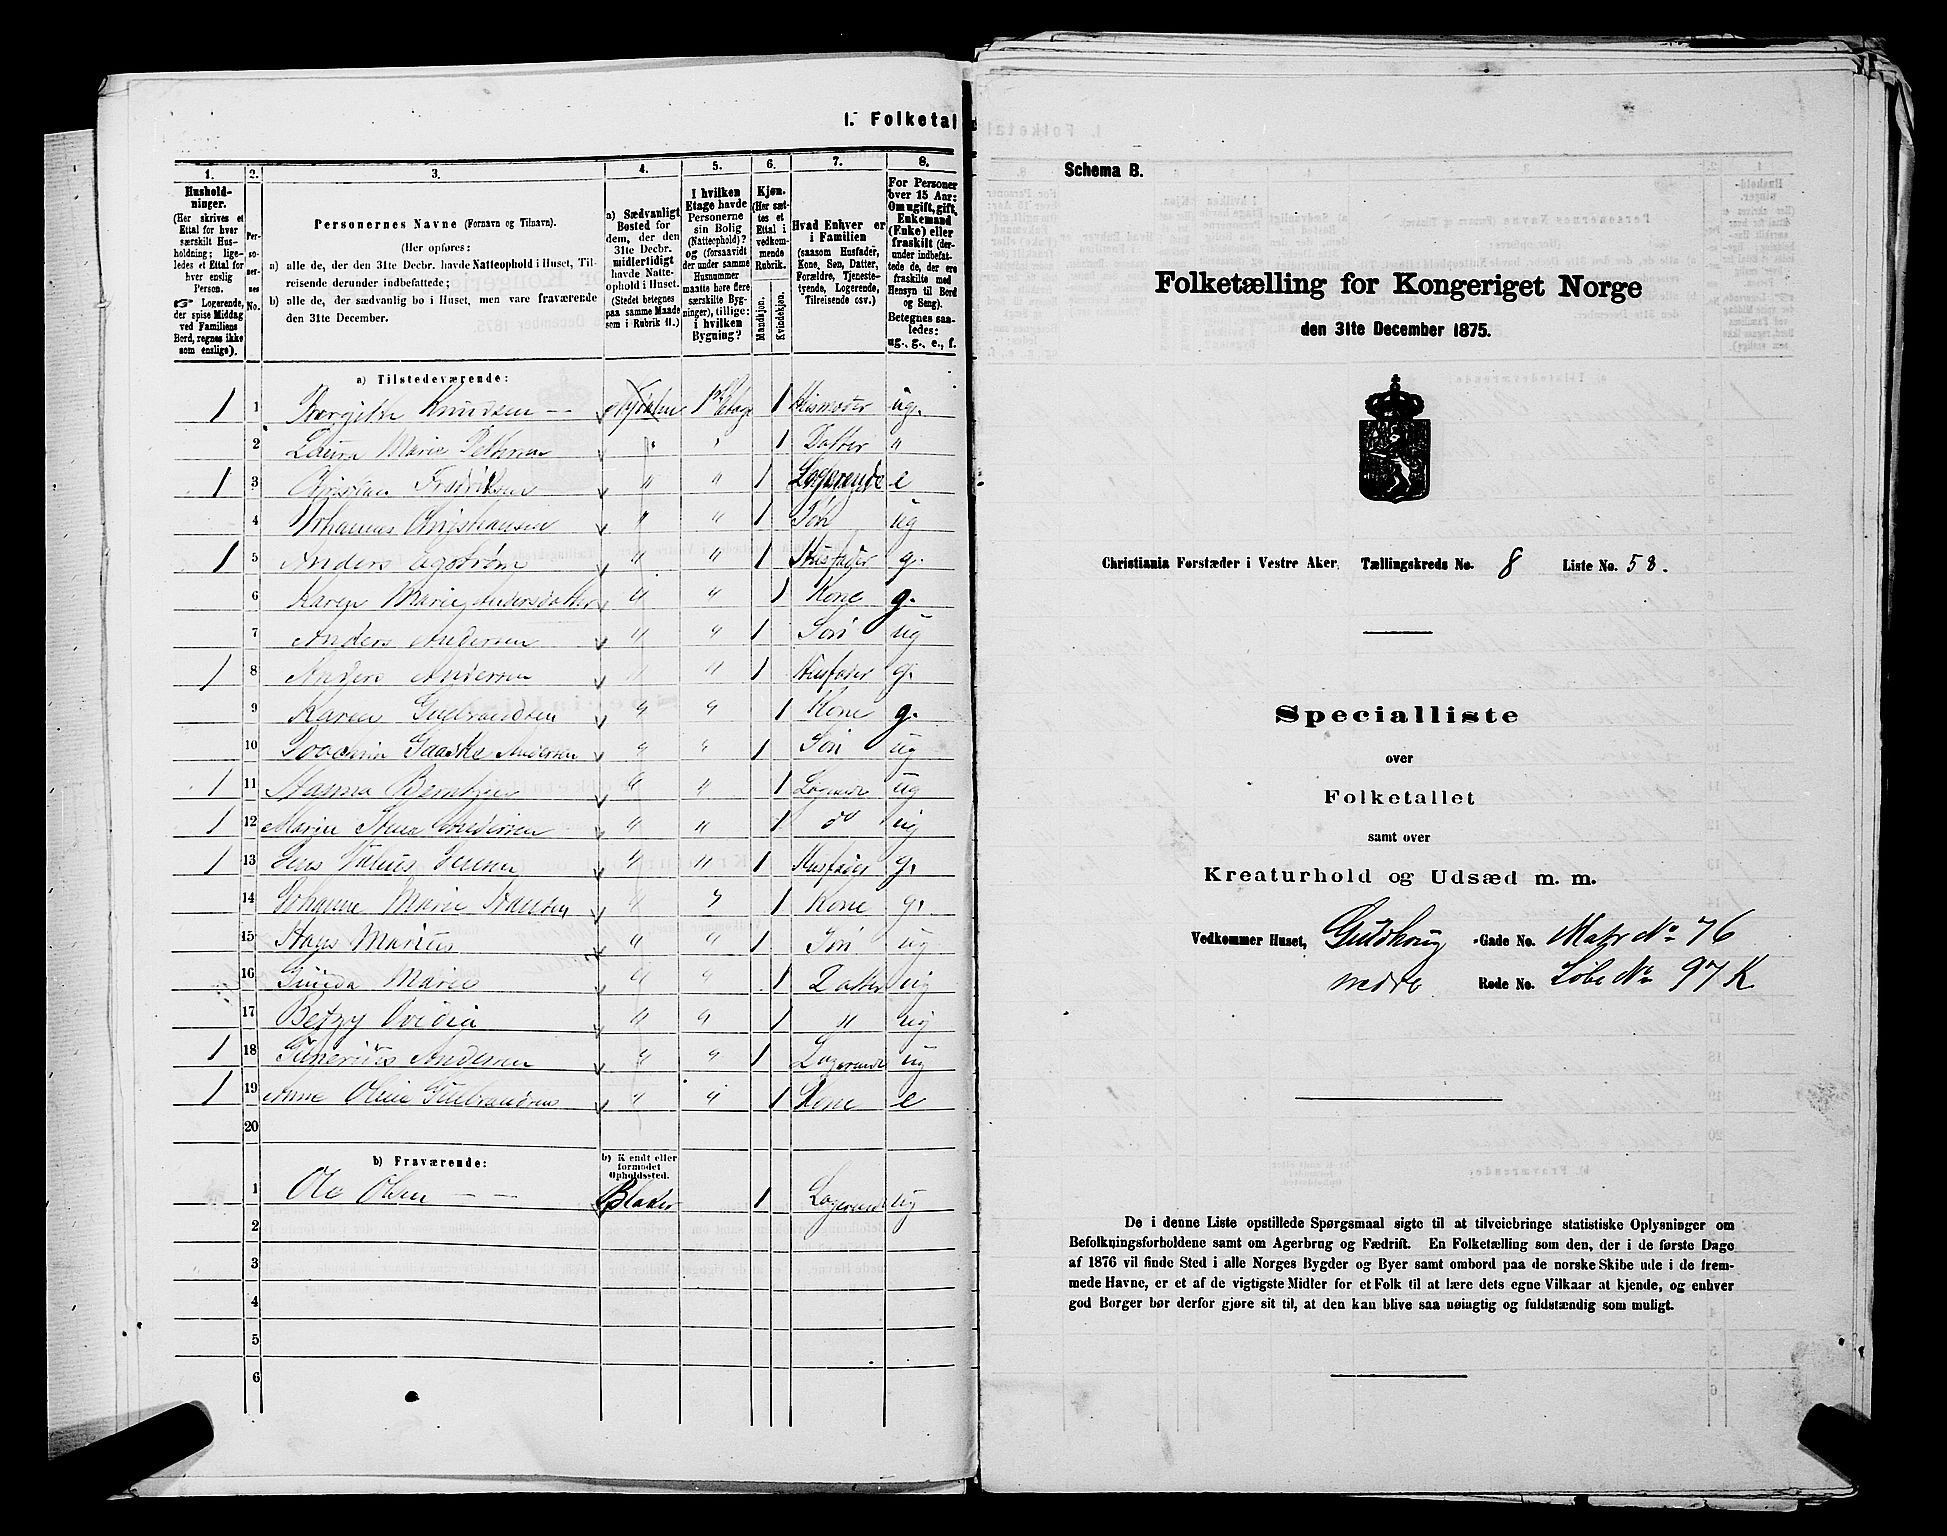 I. Folketal
1.
2.
3.
4.
5.
6.
7.
8.
Hushold-
ninger.
(Her skrives et
Ettal for hver
særskilt Hus-
holdning; lige-
ledes et Ettal for
hver enslig
Person.
☞ Logerende,
der spise Middag
ved Familiens
Bord, regnes ikke
som enslige).
Per-
so-
ner-
nes
No.
Personernes Navne (Fornavn og Tilnavn).
(Her opføres:
a) alle de, der den 31te Decbr. havde Natteophold i Huset, Til-
reisende derunder indbefattede;
b) alle de, der sædvanlig bo i Huset, men vare fraværende
den 31te December.
a) Sædvanligt
Bosted for
dem, der den
31te Decbr.
midlertidigt
havde Natte-
ophold i Huset.
(Stedet betegnes
paa samme Maade
som i Rubrik 11.)
I hvilken
Etage havde
Personerne
sin Bolig
(Natteophold)?
og (forsaavidt
der under samme
Husnummer
maatte høre flere
særskilte Byg-
ninger), tillige:
i hvilken
Bygning?
Kjøn.
(Her sæt-
tes et
Ettal i
vedkom-
mende
Rubrik.
Mandkjøn.
Kvindekjøn.
Hvad Enhver er
i Familien
(saasom Husfader,
Kone, Søn, Datter,
Forældre, Tjeneste-
tyende, Logerende,
Tilreisende osv.)
For Personer
over 15 Aar:
Om ugift, gift,
Enkemand
(Enke) eller
fraskilt (der-
under indbefat-
tede de, der ere
fraskilte med
Hensyn til Bord
og Seng).
Betegnes saa-
ledes:
ug., g., e., f.
a) Tilstedeværende:
1 1 Borgitte Knudsen 1ste Etage 1 Husmoder ug.
2 Laura Marie " 1 Datter "
1 3 Christian Fredriksen " " 1 Logerende e
4 Johannes Christiansen " " 1 Søn ug
1 5 Anders " " 1 Husfader g.
6 Karen Marie Andersdatter " " 1 Kone g.
7 Anders Andersen " " 1 Søn ug
1 8 Anders Andersen " " 1 Husfader g.
9 Karen Gudbrandsen " " 1 Kone g.
10 Andersen " " 1 Søn ug
1 11 Hanna Berntsen " " 1 Logerende ug
1 12 Andersen " " 1 do ug
1 13 Jens " " 1 Husfader g.
14 Johanne Marie Hansen " " 1 Kone g.
15 Hans Marius " " 1 Søn ug
16 Marie " " 1 Datter ug
17 Betzy Ovidia " " 1 " ug
1 18 Andersen " " 1 Logerende ug
1 19 Anne Oline Gulbrandsen " " 1 Kone e
20
b) Fraværende:
b) Kendt eller
formodet
Opholdssted.
1 Ole Olsen — — 1 Logerende ug
2
3
4
5
6
Schema B.
Folketælling for Kongeriget Norge
den 31te December 1875.
Christiania Forstæder i Vestre Aker, Tællingskreds No. 8 Liste No. 58.
Specialliste
over
Folketallet
samt over
Kreaturhold og Udsæd m. m.
Vedkommer Huset, Guldhoug -Gade No. Matr No 76
nedre Rode No. Løbe No 97 K
De i denne Liste opstillede Spørgsmaal sigte til at tilveiebringe statistiske Oplysninger om
Befolkningsforholdene samt om Agerbrug og Fædrift. En Folketælling som den, der i de første Dage
af 1876 vil finde Sted i alle Norges Bygder og Byer samt ombord paa de norske Skibe ude i de frem-
mede Havne, er et af de vigtigste Midler for et Folk til at lære dets egne Vilkaar at kjende, og enhver
god Borger bør derfor gjøre sit til, at den kan blive saa nøiagtig og fuldstændig som muligt.